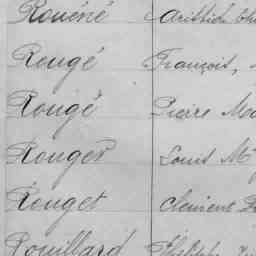 Rouéné Aristide
Rougé François,
Rougé Pierre
Rouger Louis M
Rouget Clément
Rouillard